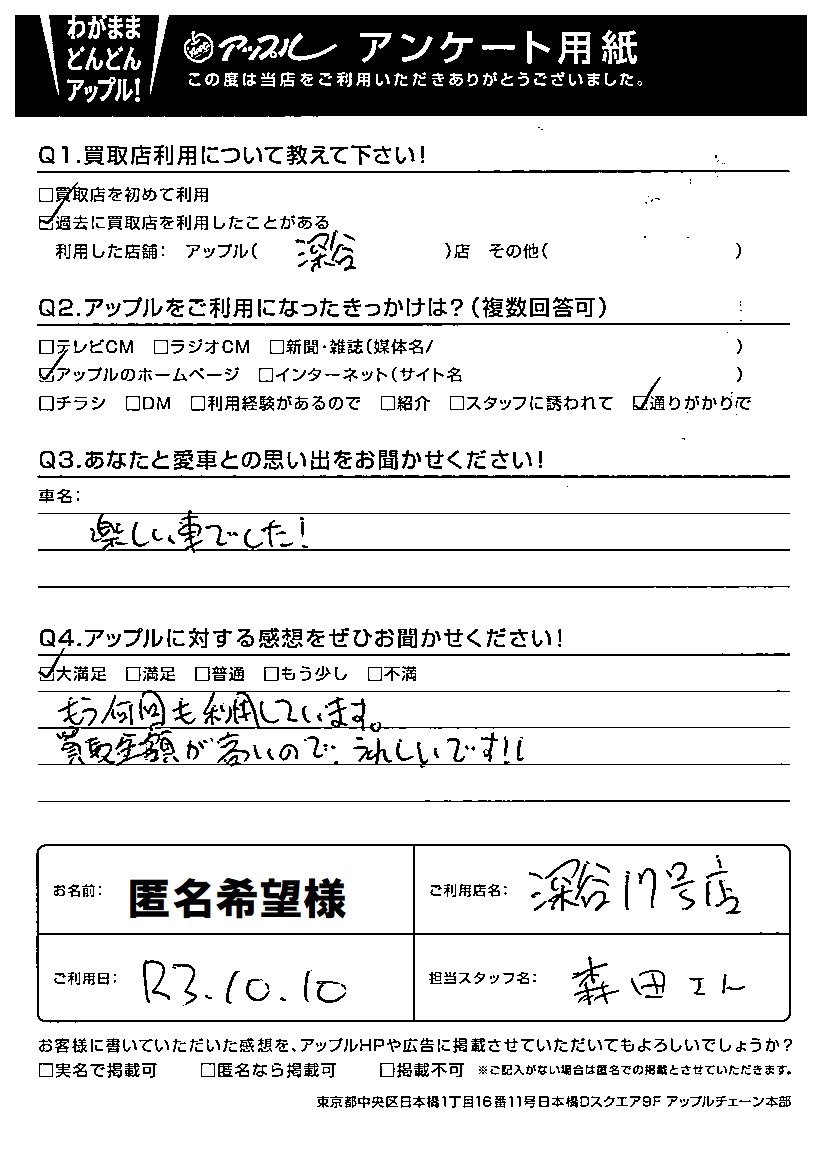 わがまま
どんどん
アップル!
アップル アンケート用紙
この度は当店をご利用いただきありがとうございました。
Q1.買取店利用について教えて下さい!
□買取店を初めて利用
☑過去に買取店を利用したことがある
利用した店舗: アップル( 深谷 )店 その他( )
Q2.アップルをご利用になったきっかけは?(複数回答可)
□テレビCM □ラジオCM □新聞・雑誌(媒体名/ )
☑アップルのホームページ □インターネット(サイト名 )
□チラシ □DM □利用経験があるので □紹介 □スタッフに誘われて ☑通りがかりで
Q3.あなたと愛車との思い出をお聞かせください!
車名:
楽しい車でした!
Q4.アップルに対する感想をぜひお聞かせください!
☑大満足 □満足 □普通 □もう少し □不満
もう何回も利用しています。
買取金額が高いので、うれしいです!!
お名前: 匿名希望様
ご利用店名: 深谷17号店
ご利用日: R3.10.10
担当スタッフ名: 森田さん
お客様に書いていただいた感想を、アップルHPや広告に掲載させていただいてもよろしいでしょうか?
□実名で掲載可 □匿名なら掲載可 □掲載不可 ※ご記入がない場合は匿名での掲載とさせていただきます。
東京都中央区日本橋1丁目16番11号日本橋Dスクエア9F アップルチェーン本部